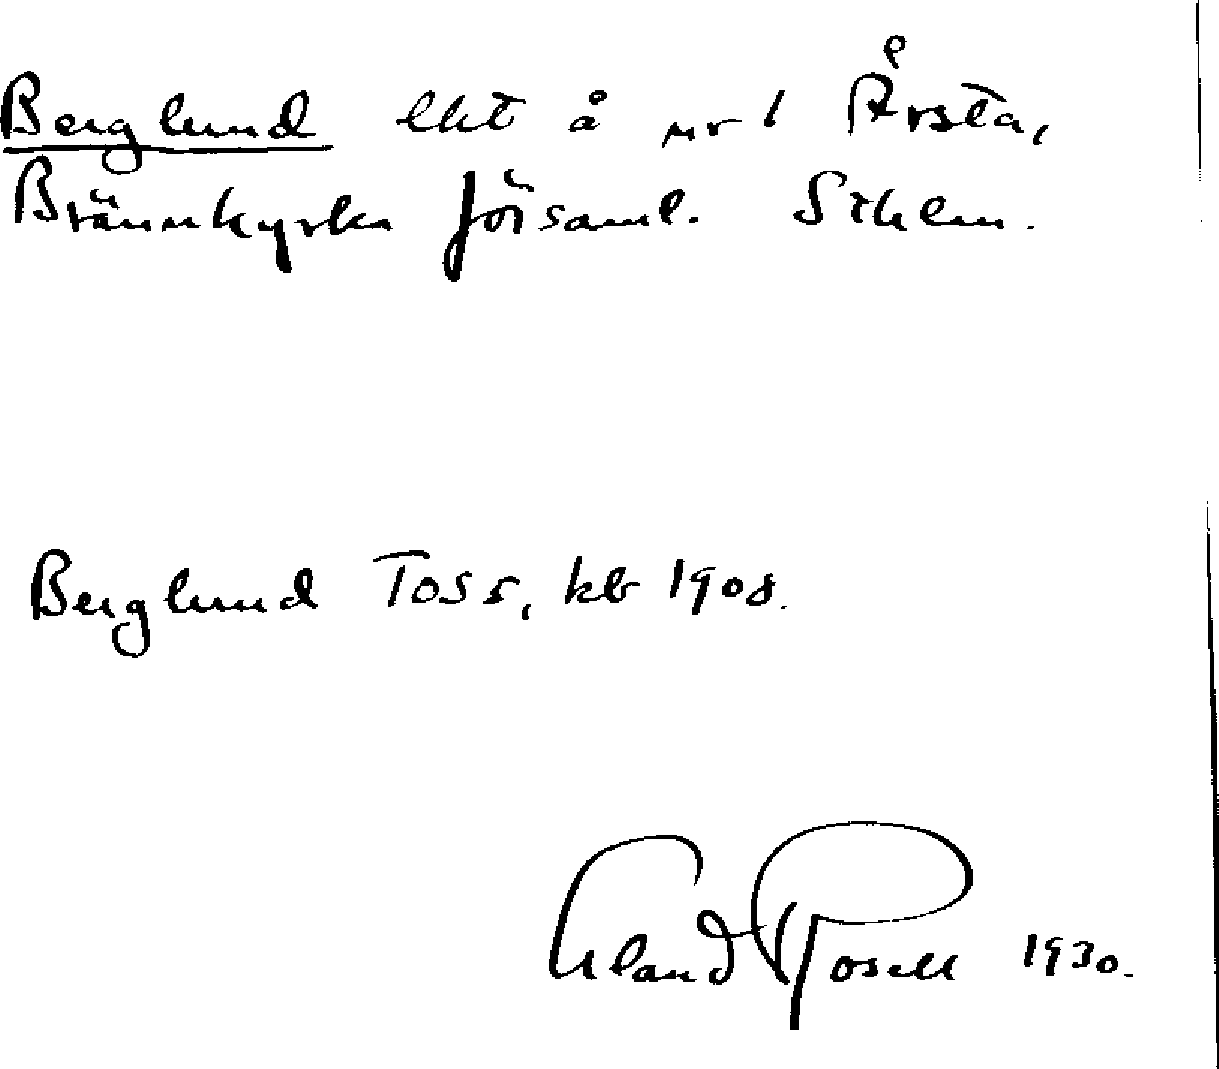 Berglund lht å nr 1 Årsta,
Brännkyrka församl. Sthlm.
Berglund TOSS, kb 1908.
Erland Rosell 1930.